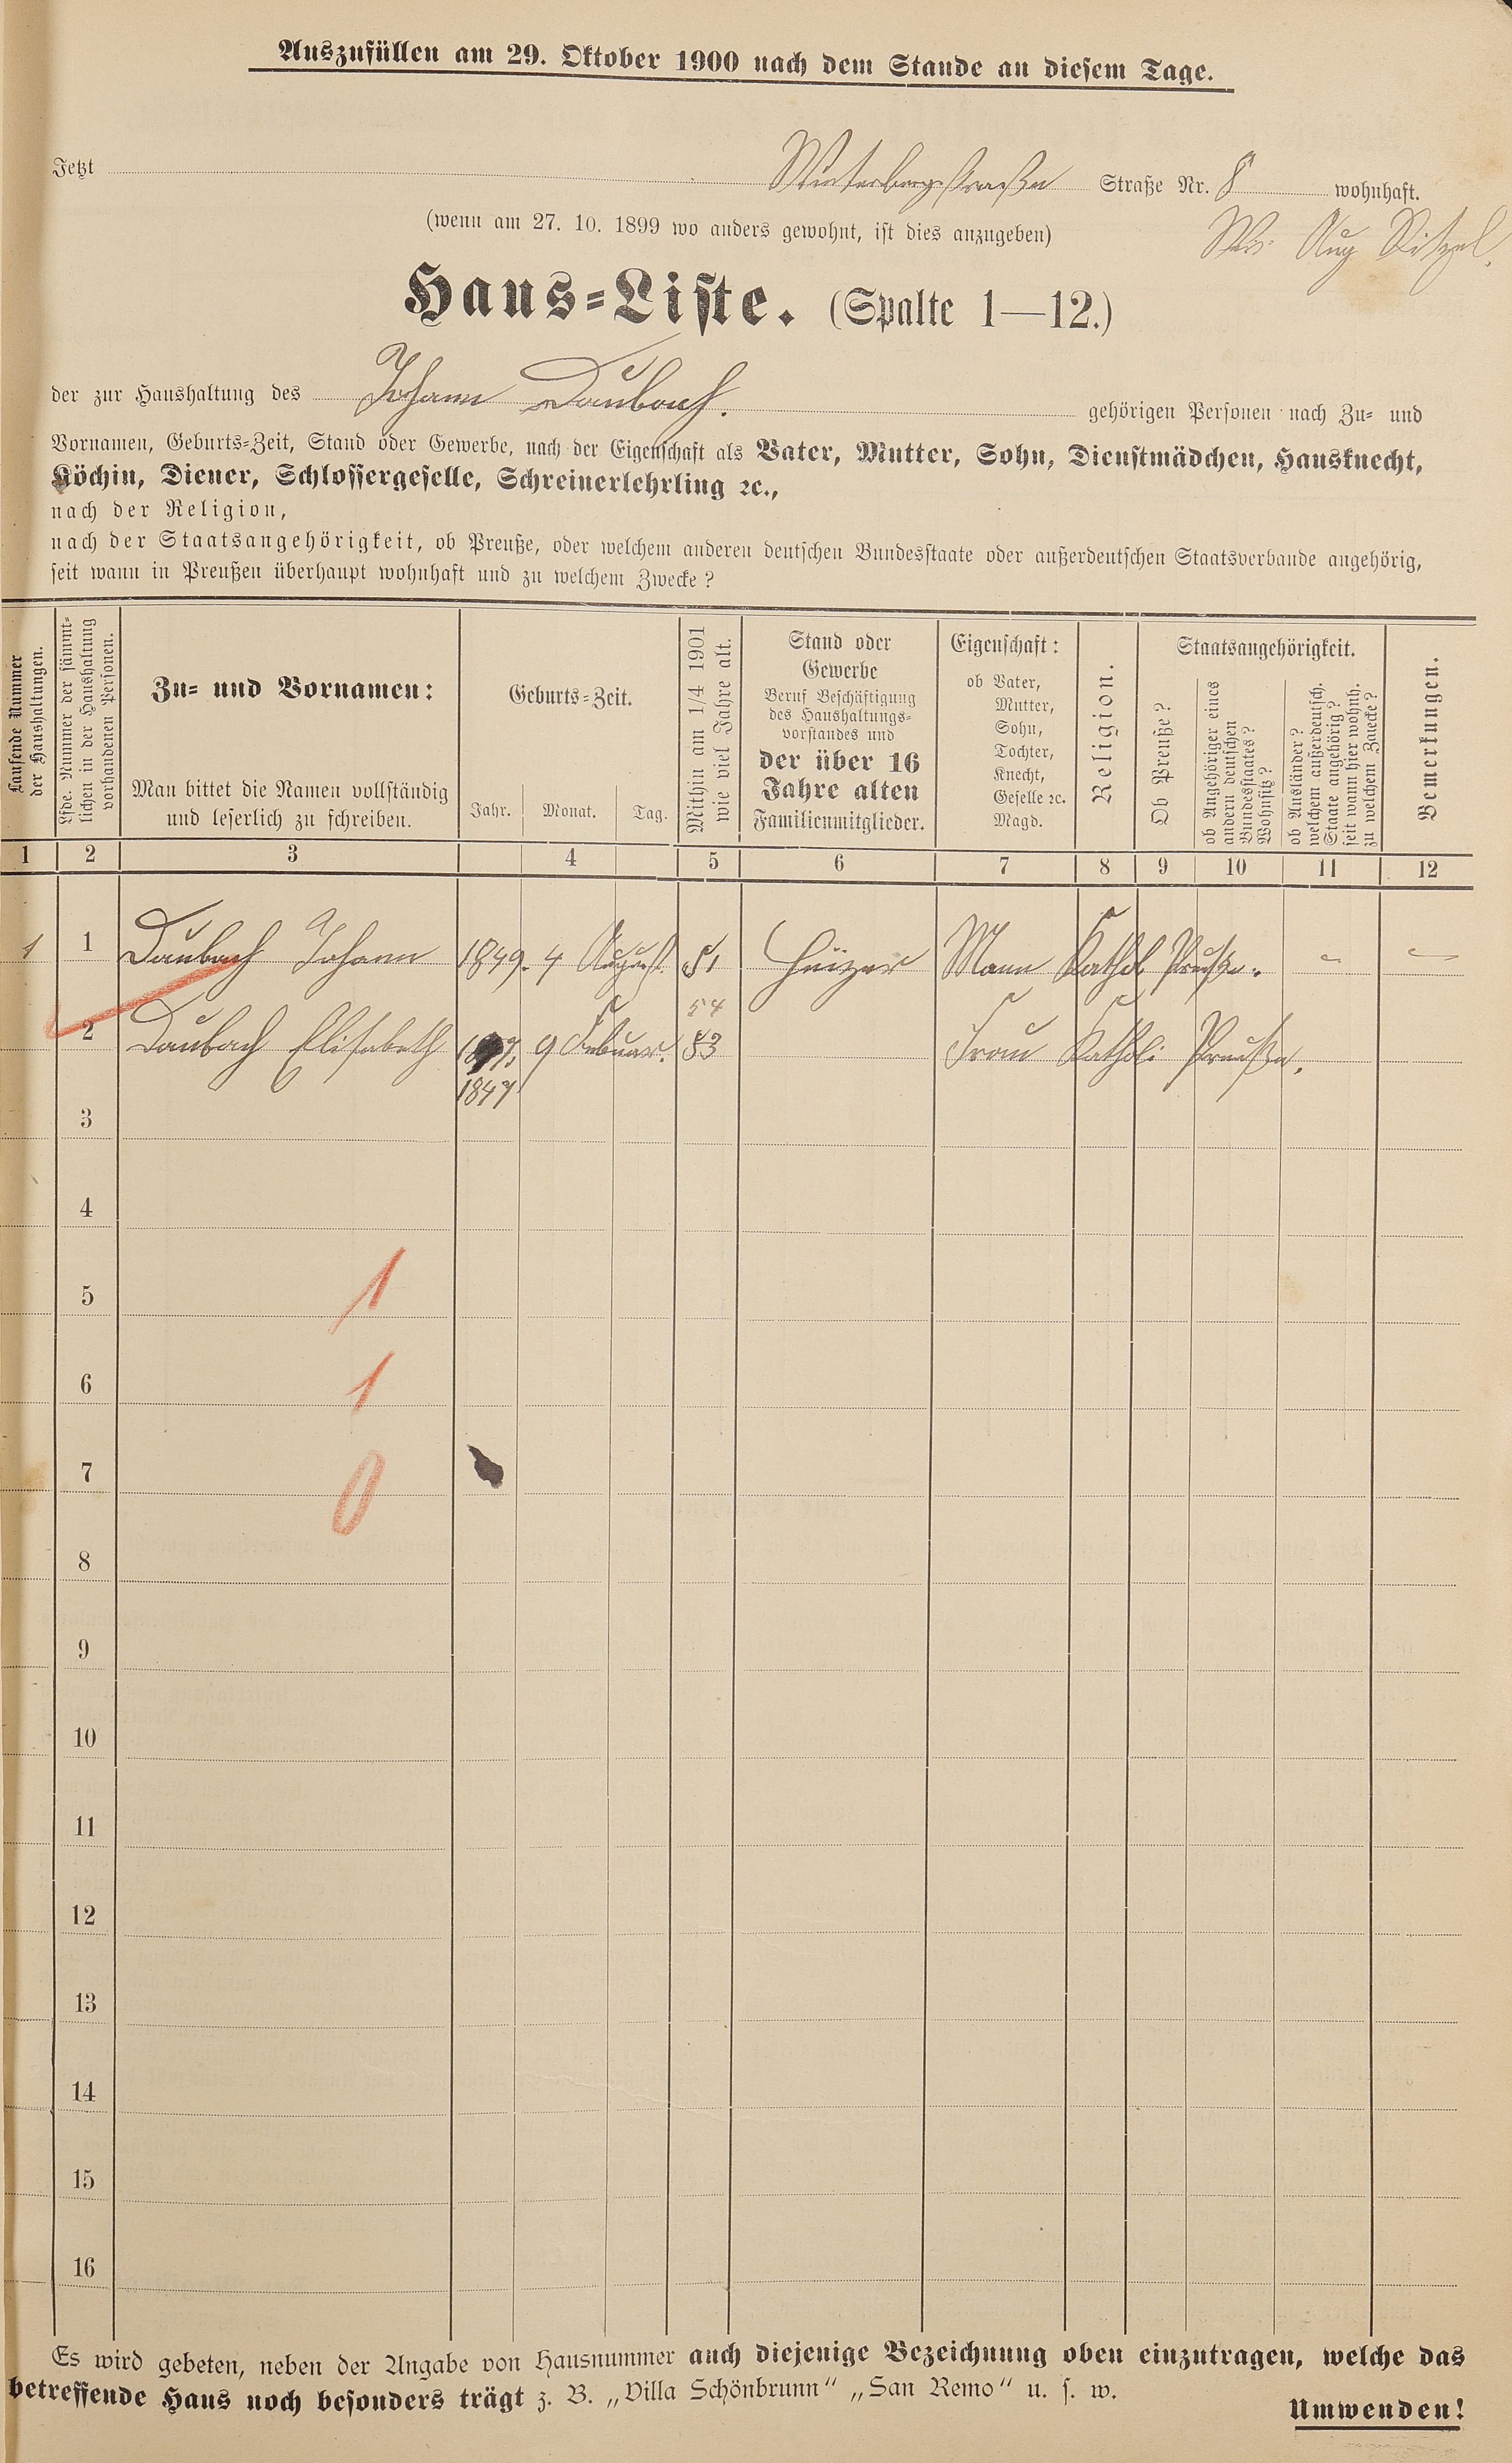 Auszufüllen am 29. Oktober 1900 nach dem Stande an diesem Tage.
Jetzt Winterbergstraße Straße Nr. 8 wohnhaft.
(wenn am 27. 10. 1899 wo anders gewohnt, ist dies anzugeben)
Aug
Haus-Liste. (Spalte 1—12.)
der zur Haushaltung des Johann Daubach. gehörigen Personen nach Zu- und
Vornamen, Geburts-Zeit, Stand oder Gewerbe, nach der Eigenschaft als Vater, Mutter, Sohn, Dienstmädchen, Hausknecht,
Köchin, Diener, Schlossergeselle, Schreinerlehrling ꝛc.,
nach der Religion,
nach der Staatsangehörigkeit, ob Preuße, oder welchem anderen deutschen Bundesstaate oder außerdeutschen Staatsverbande angehörig,
seit wann in Preußen überhaupt wohnhaft und zu welchem Zwecke?
Laufende Nummer
der Haushaltungen.
Lfde. Nummer der sämmt-
lichen in der Haushaltung
vorhandenen Personen.
Zu- und Vornamen:
Man bittet die Namen vollständig
und leserlich zu schreiben.
Geburts-Zeit.
Jahr. Monat. Tag.
Mithin am 1/4 1901
wie viel Jahre alt.
Stand oder
Gewerbe
Beruf Beschäftigung
des Haushaltungs-
vorstandes und
der über 16
Jahre alten
Familienmitglieder.
Eigenschaft:
ob Vater,
Mutter,
Sohn,
Tochter,
Knecht,
Geselle ꝛc.
Magd.
Religion.
Staatsangehörigkeit.
Ob Preuße?
ob Angehöriger eines
andern deutschen
Bundesstaates?
Wohnsitz?
ob Ausländer?
welchem außerdeutsch.
Staate angehörig?
seit wann hier wohnh.
zu welchem Zwecke?
Bemerkungen.
1 2 3 4 5 6 7 8 9 10 11 12
1 1 Daubach Johann 1849. 4 August. 51 Heizer Mann Kathol Preuße. - -
54
2 Daubach Elisabeth 9 Februar. 53 Frau Katholi Preuße.
1847
3
4
5 1
6 1
7 0
8
9
10
11
12
13
14
15
16
Es wird gebeten, neben der Angabe von Hausnummer auch diejenige Bezeichnung oben einzutragen, welche das
betreffende Haus noch besonders trägt z. B. „Villa Schönbrunn“ „San Remo“ u. s. w.
Umwenden!